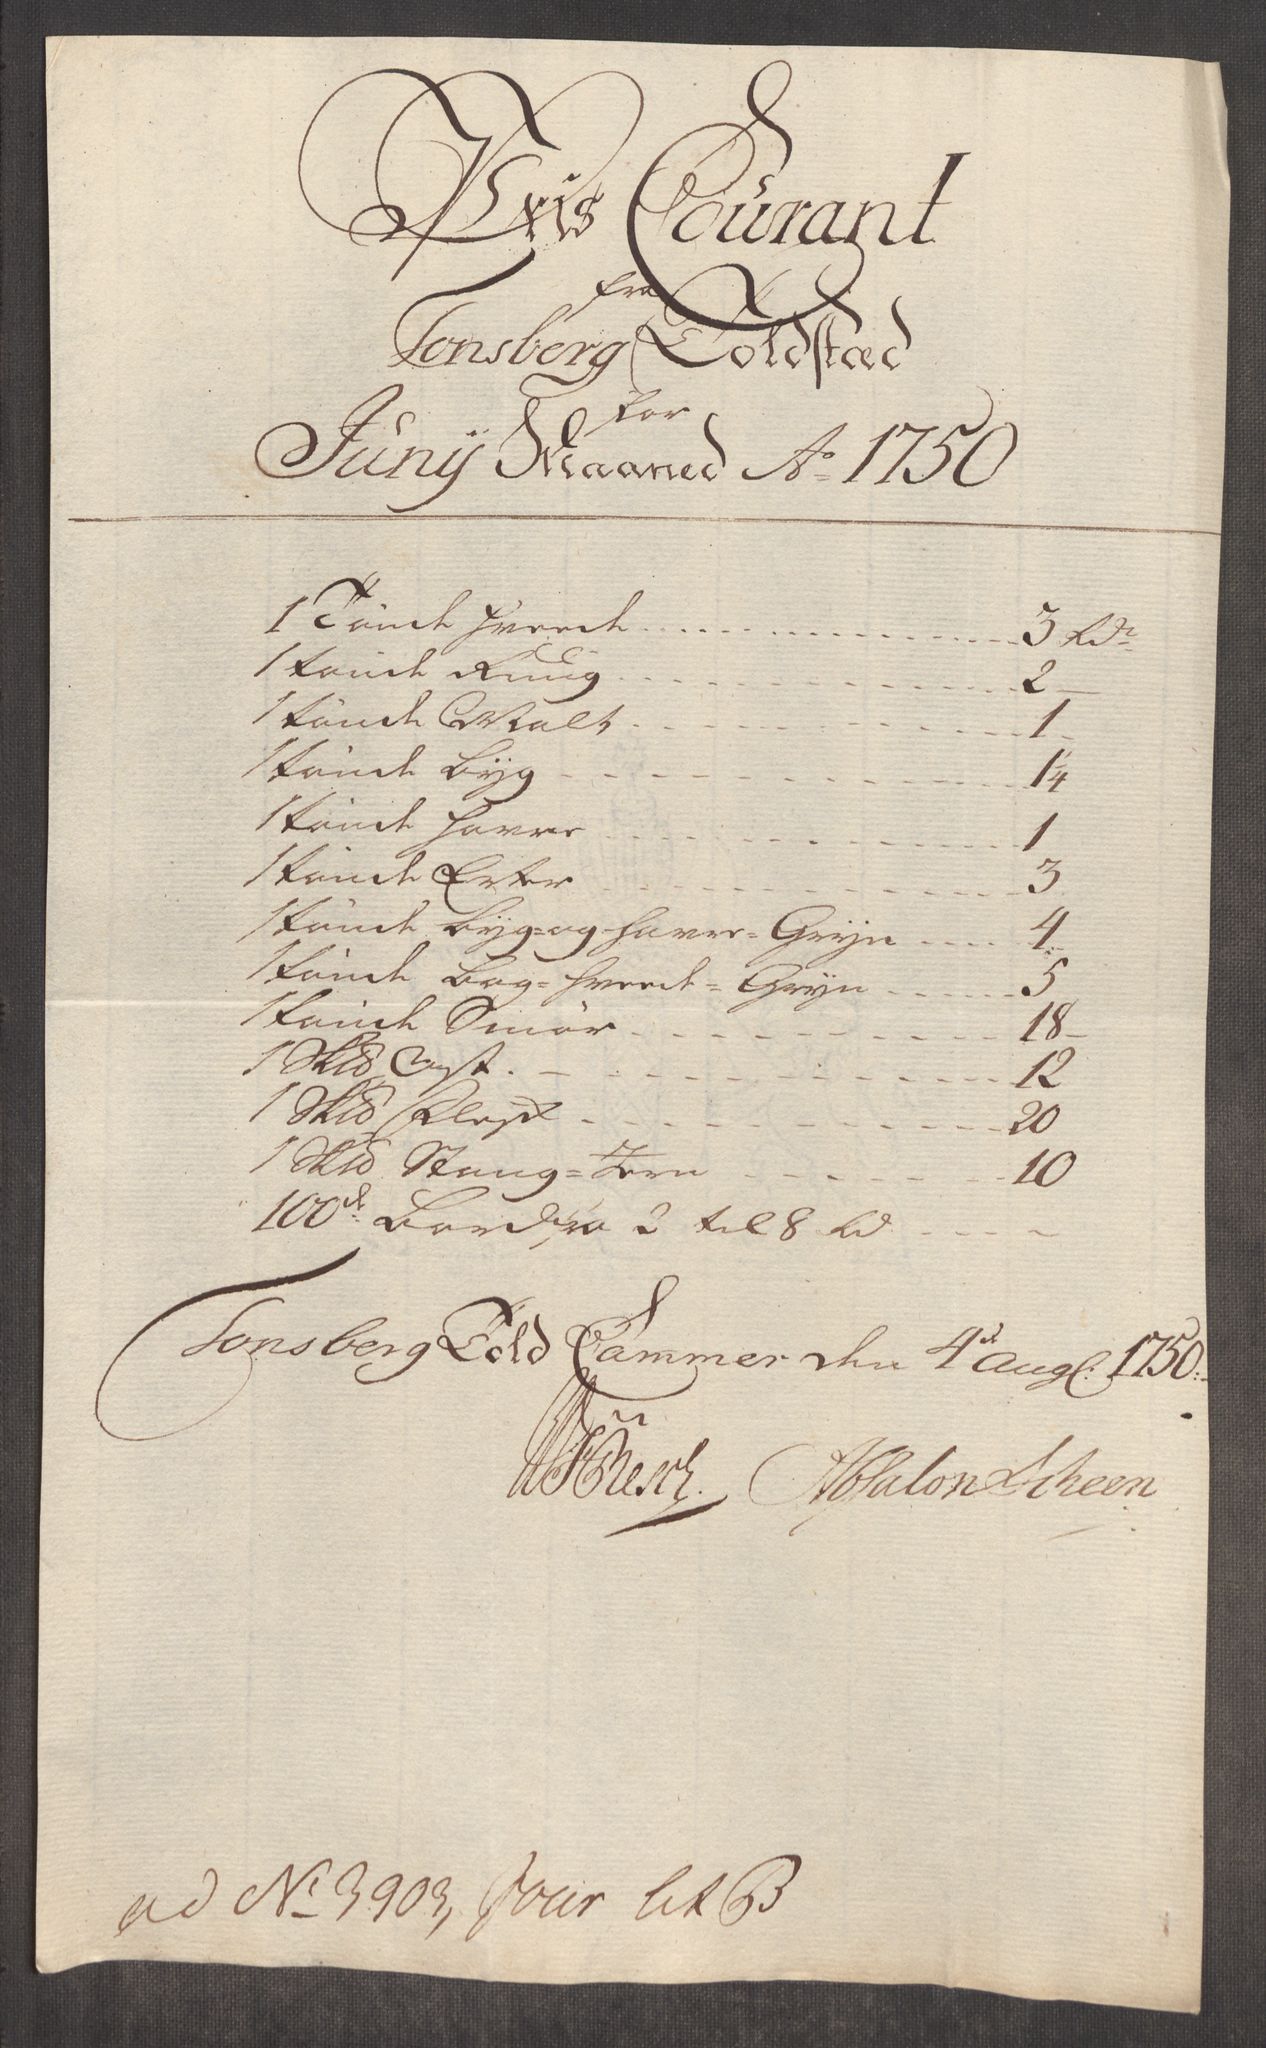 Priis Courant
fra
Tonsberg Toldstæd
for
Junij Maaned Ao 1750
1 Tönde Hvede 3 Rdr
1 tönde Rüug 2
1 tönde Malt 1
1 tönde Byg 1 1/4
1 tönde Havre 1
1 tönde Erter 3
1 tönde Byg= og Havre= Gryn 4
1 tönde Bog= Hvede= Gryn 5
1 tönde Smör 18
1 Skid Ost 12
1 Skid Flesk 20
1 Skid Stang= Jern 10
100de Bord fra 2 til 8 Rd
Tonsberg Told Cammer den 4de Aug: 1750
Resch. Absalon Scheen
ad No 3903, Jour lit B